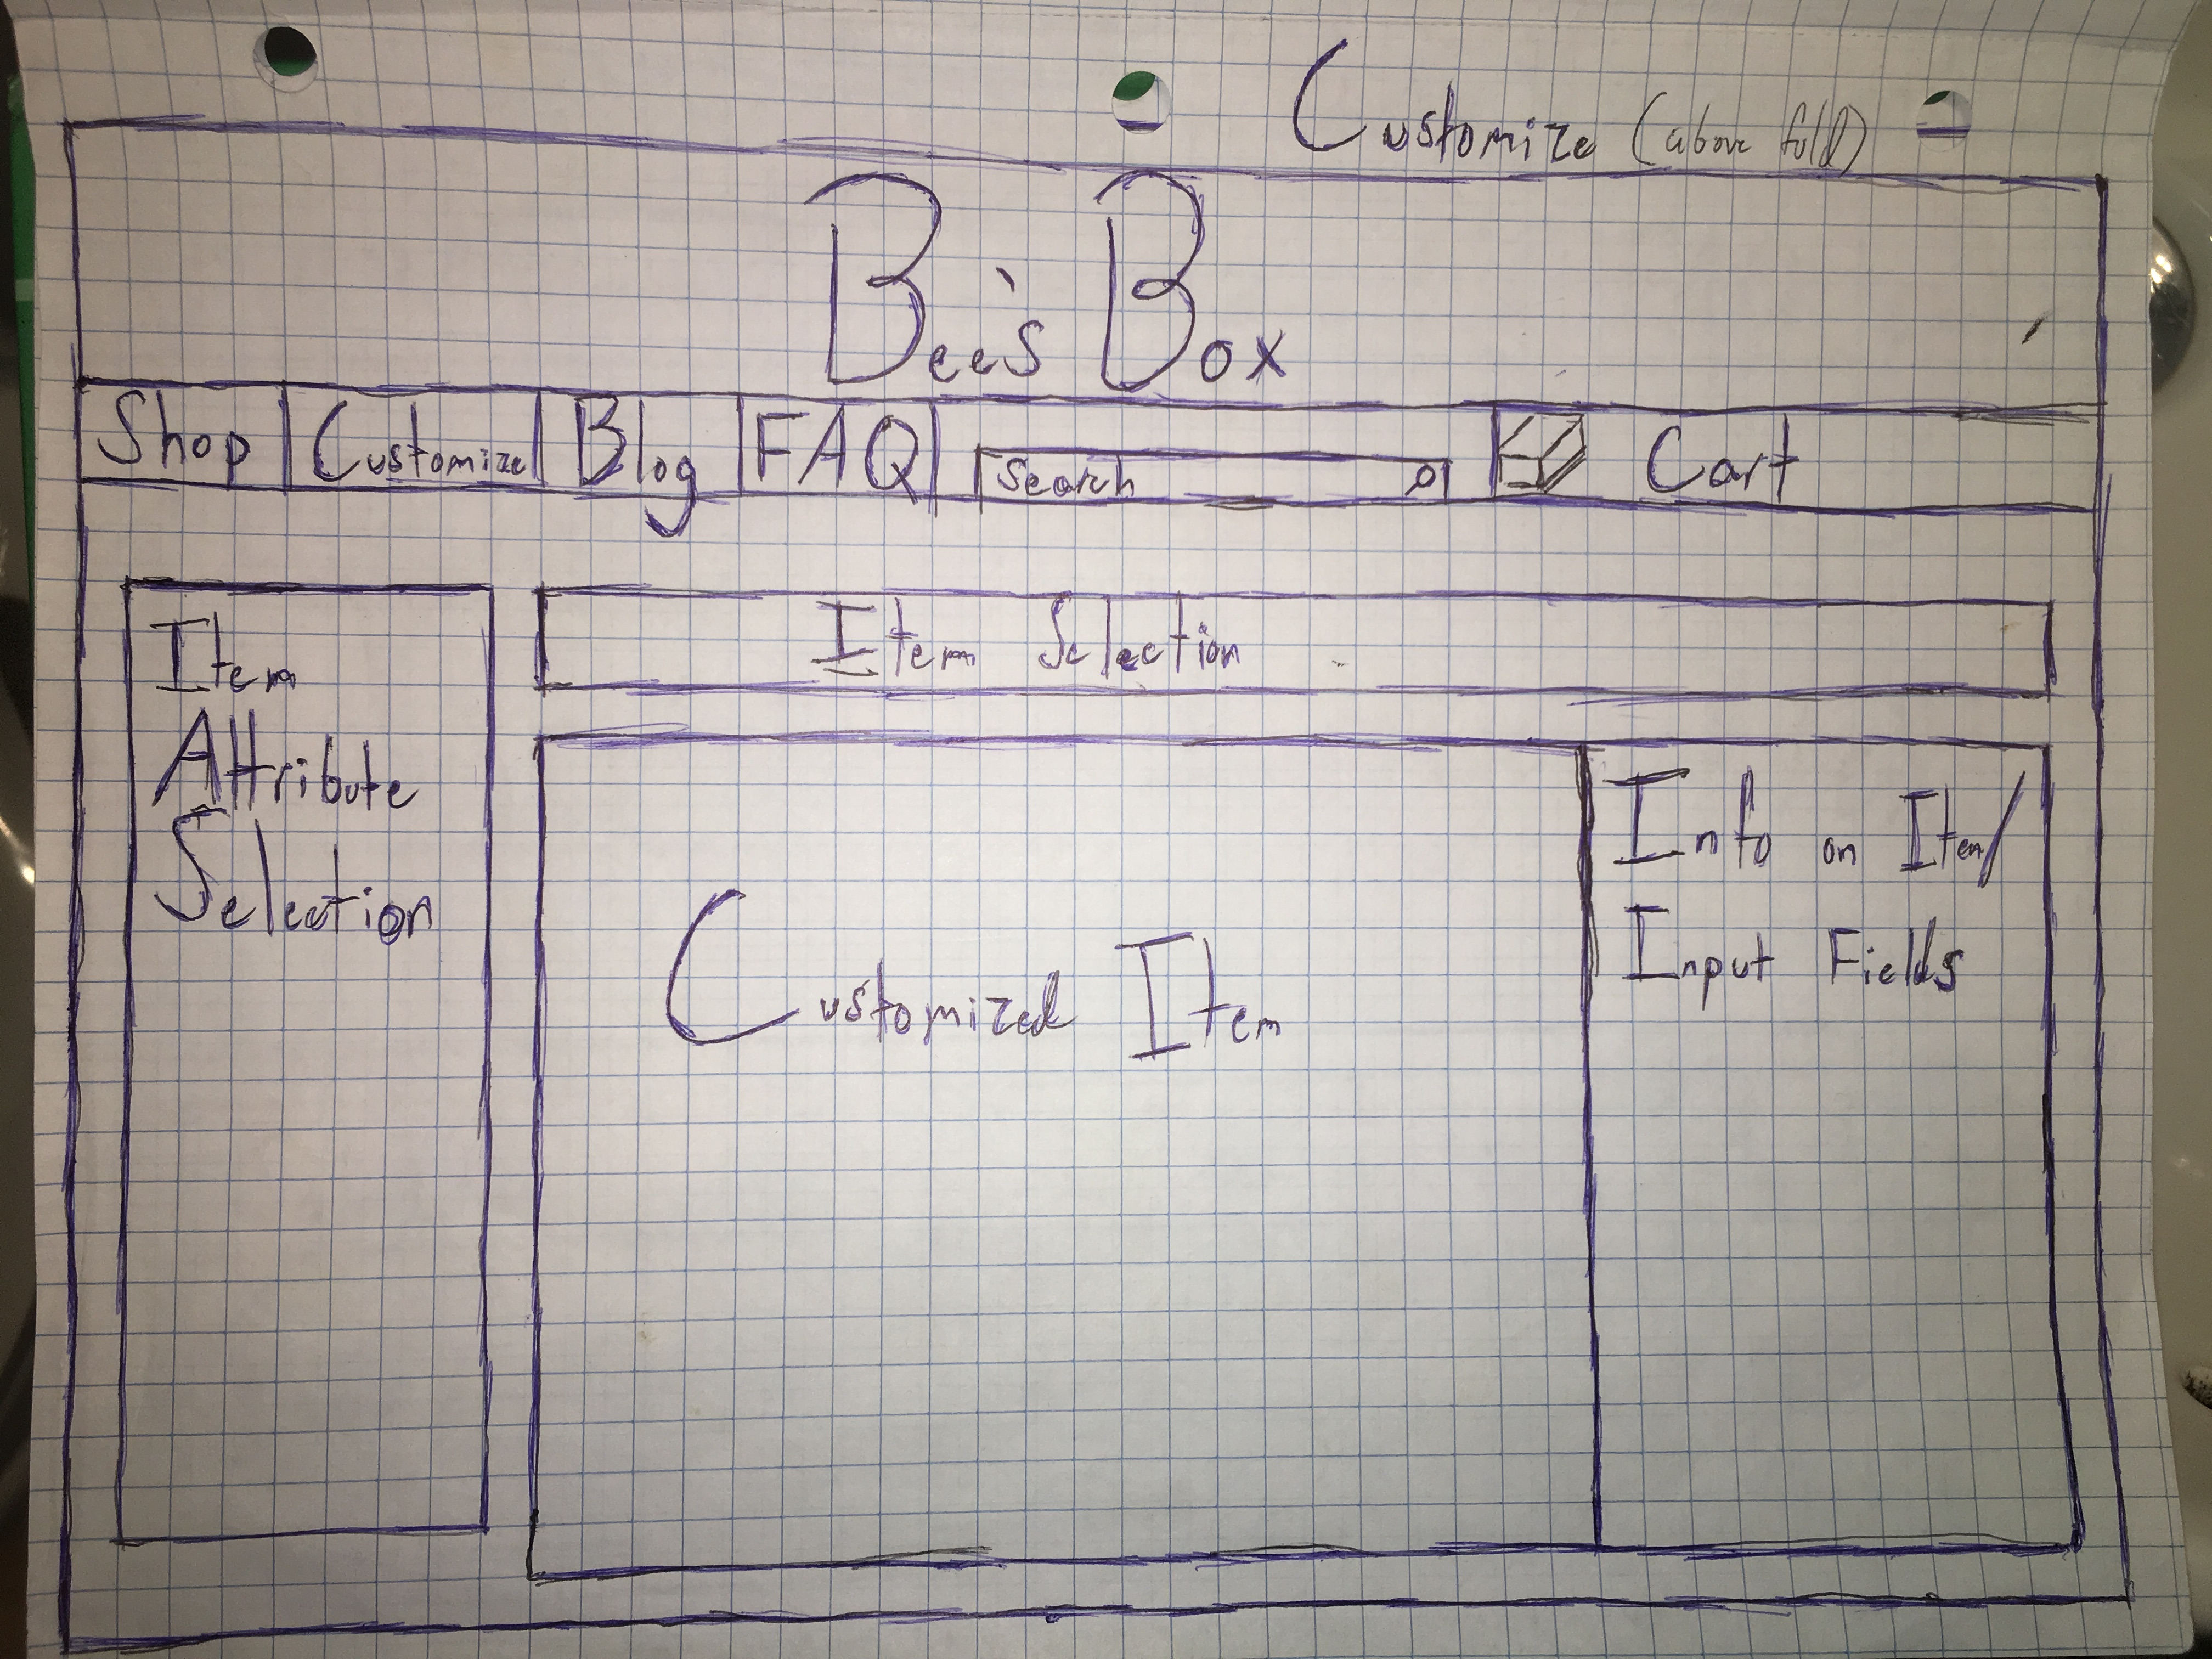 Customize (above fold)
Bee's Box
Shop Customize Blog FAQ Search Cart
Item
Attribute
Selection
Item Selection
Customized Item
Info on Item/
Input Fields